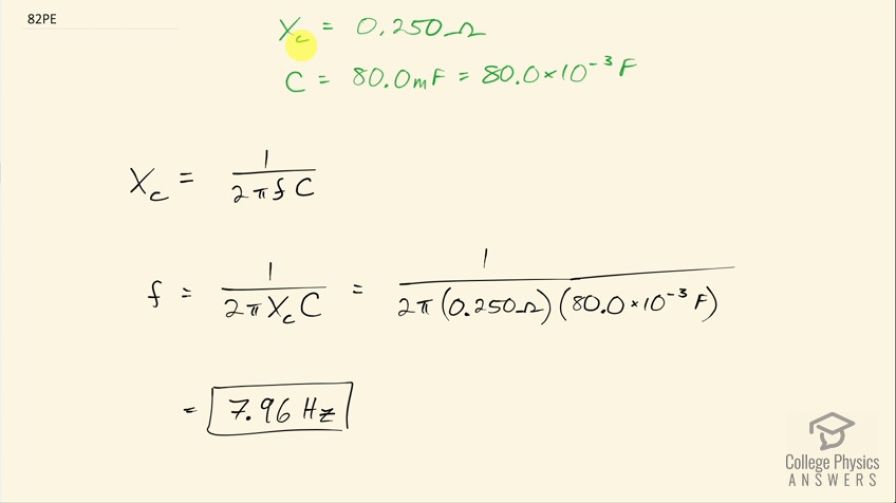 82PE
X_c = 0.250Ω
C = 80.0mF = 80.0×10⁻³F
X_c = 1/(2πfC)
f = 1/(2πX_cC) = 1/(2π(0.250Ω)(80.0×10⁻³F))
= 7.96 Hz
College Physics
ANSWERS